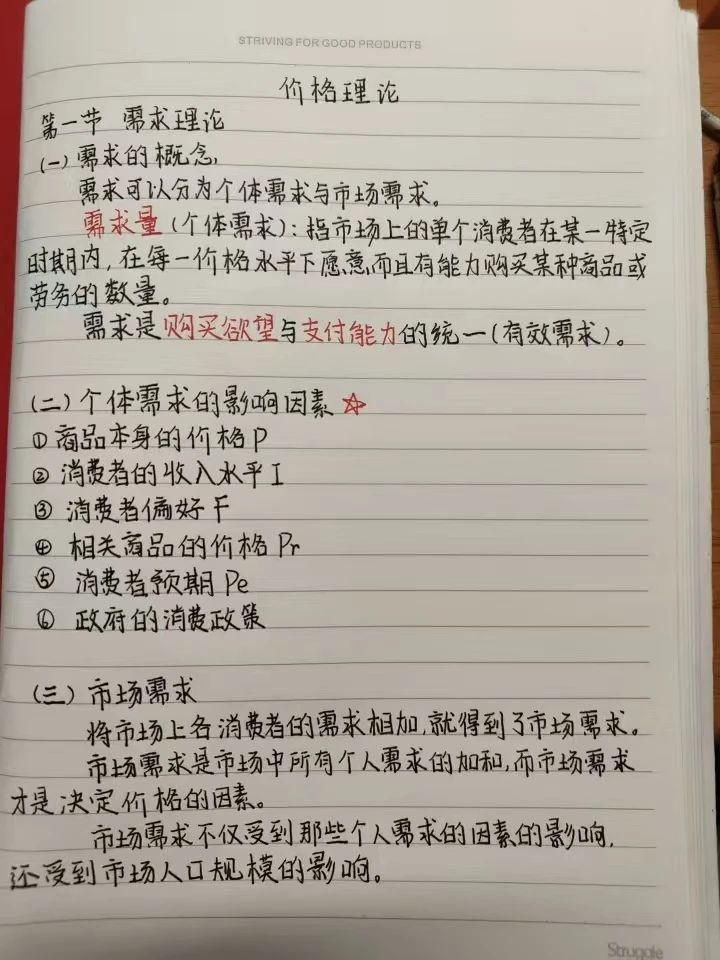 STRIVING FOR GOOD PRODUCTS
价格理论
第一节 需求理论
(一)需求的概念,
需求可以分为个体需求与市场需求。
需求量(个体需求):指市场上的单个消费者在某一特定
时期内,在每一价格水平下愿意而且有能力购买某种商品或
劳务的数量。
需求是购买欲望与支付能力的统一(有效需求)。
(二)个体需求的影响因素☆
①商品本身的价格P
②消费者的收入水平I
③消费者偏好F
④相关商品的价格Pr
⑤消费者预期Pe
⑥政府的消费政策
(三)市场需求
将市场上各消费者的需求相加,就得到了市场需求。
市场需求是市场中所有个人需求的加和,而市场需求
才是决定价格的因素。
市场需求不仅受到那些个人需求的因素的影响,
还受到市场人口规模的影响。
Struggle